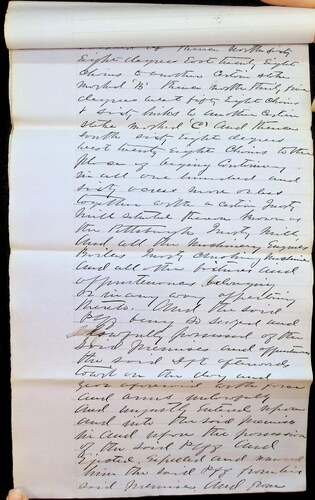 thence North sixty
Eight degrees East twenty Eight
Chains to another Certain stake
marked 'B' thence north thirty
degrees west fifty Eight Chains
& sixty links to another Certain
stake marked 'C' And thence
south sixty Eight degrees
west twenty Eight Chains to the
place of beginning Containing
in all one hundred and
sixty acres more or less
together with a certain
Mill situate thereon known as
the Pittsburgh Mill
And all the Machinery Engines
Boilers Machine
And all other fixtures and
appurtenances belonging
or in any way appertaining
thereto. And the said
Plff being so seized and
lawfully possessed of the
said premises and appurtenances
the said Dft afterwards
to wit on the day and
year aforesaid with force
and arms unlawfully
and unjustly Entered upon
and into the said premises
in and upon the possession
of the said Plff And
Ejected, Expelled and removed
him the said Plff from his
said premises And